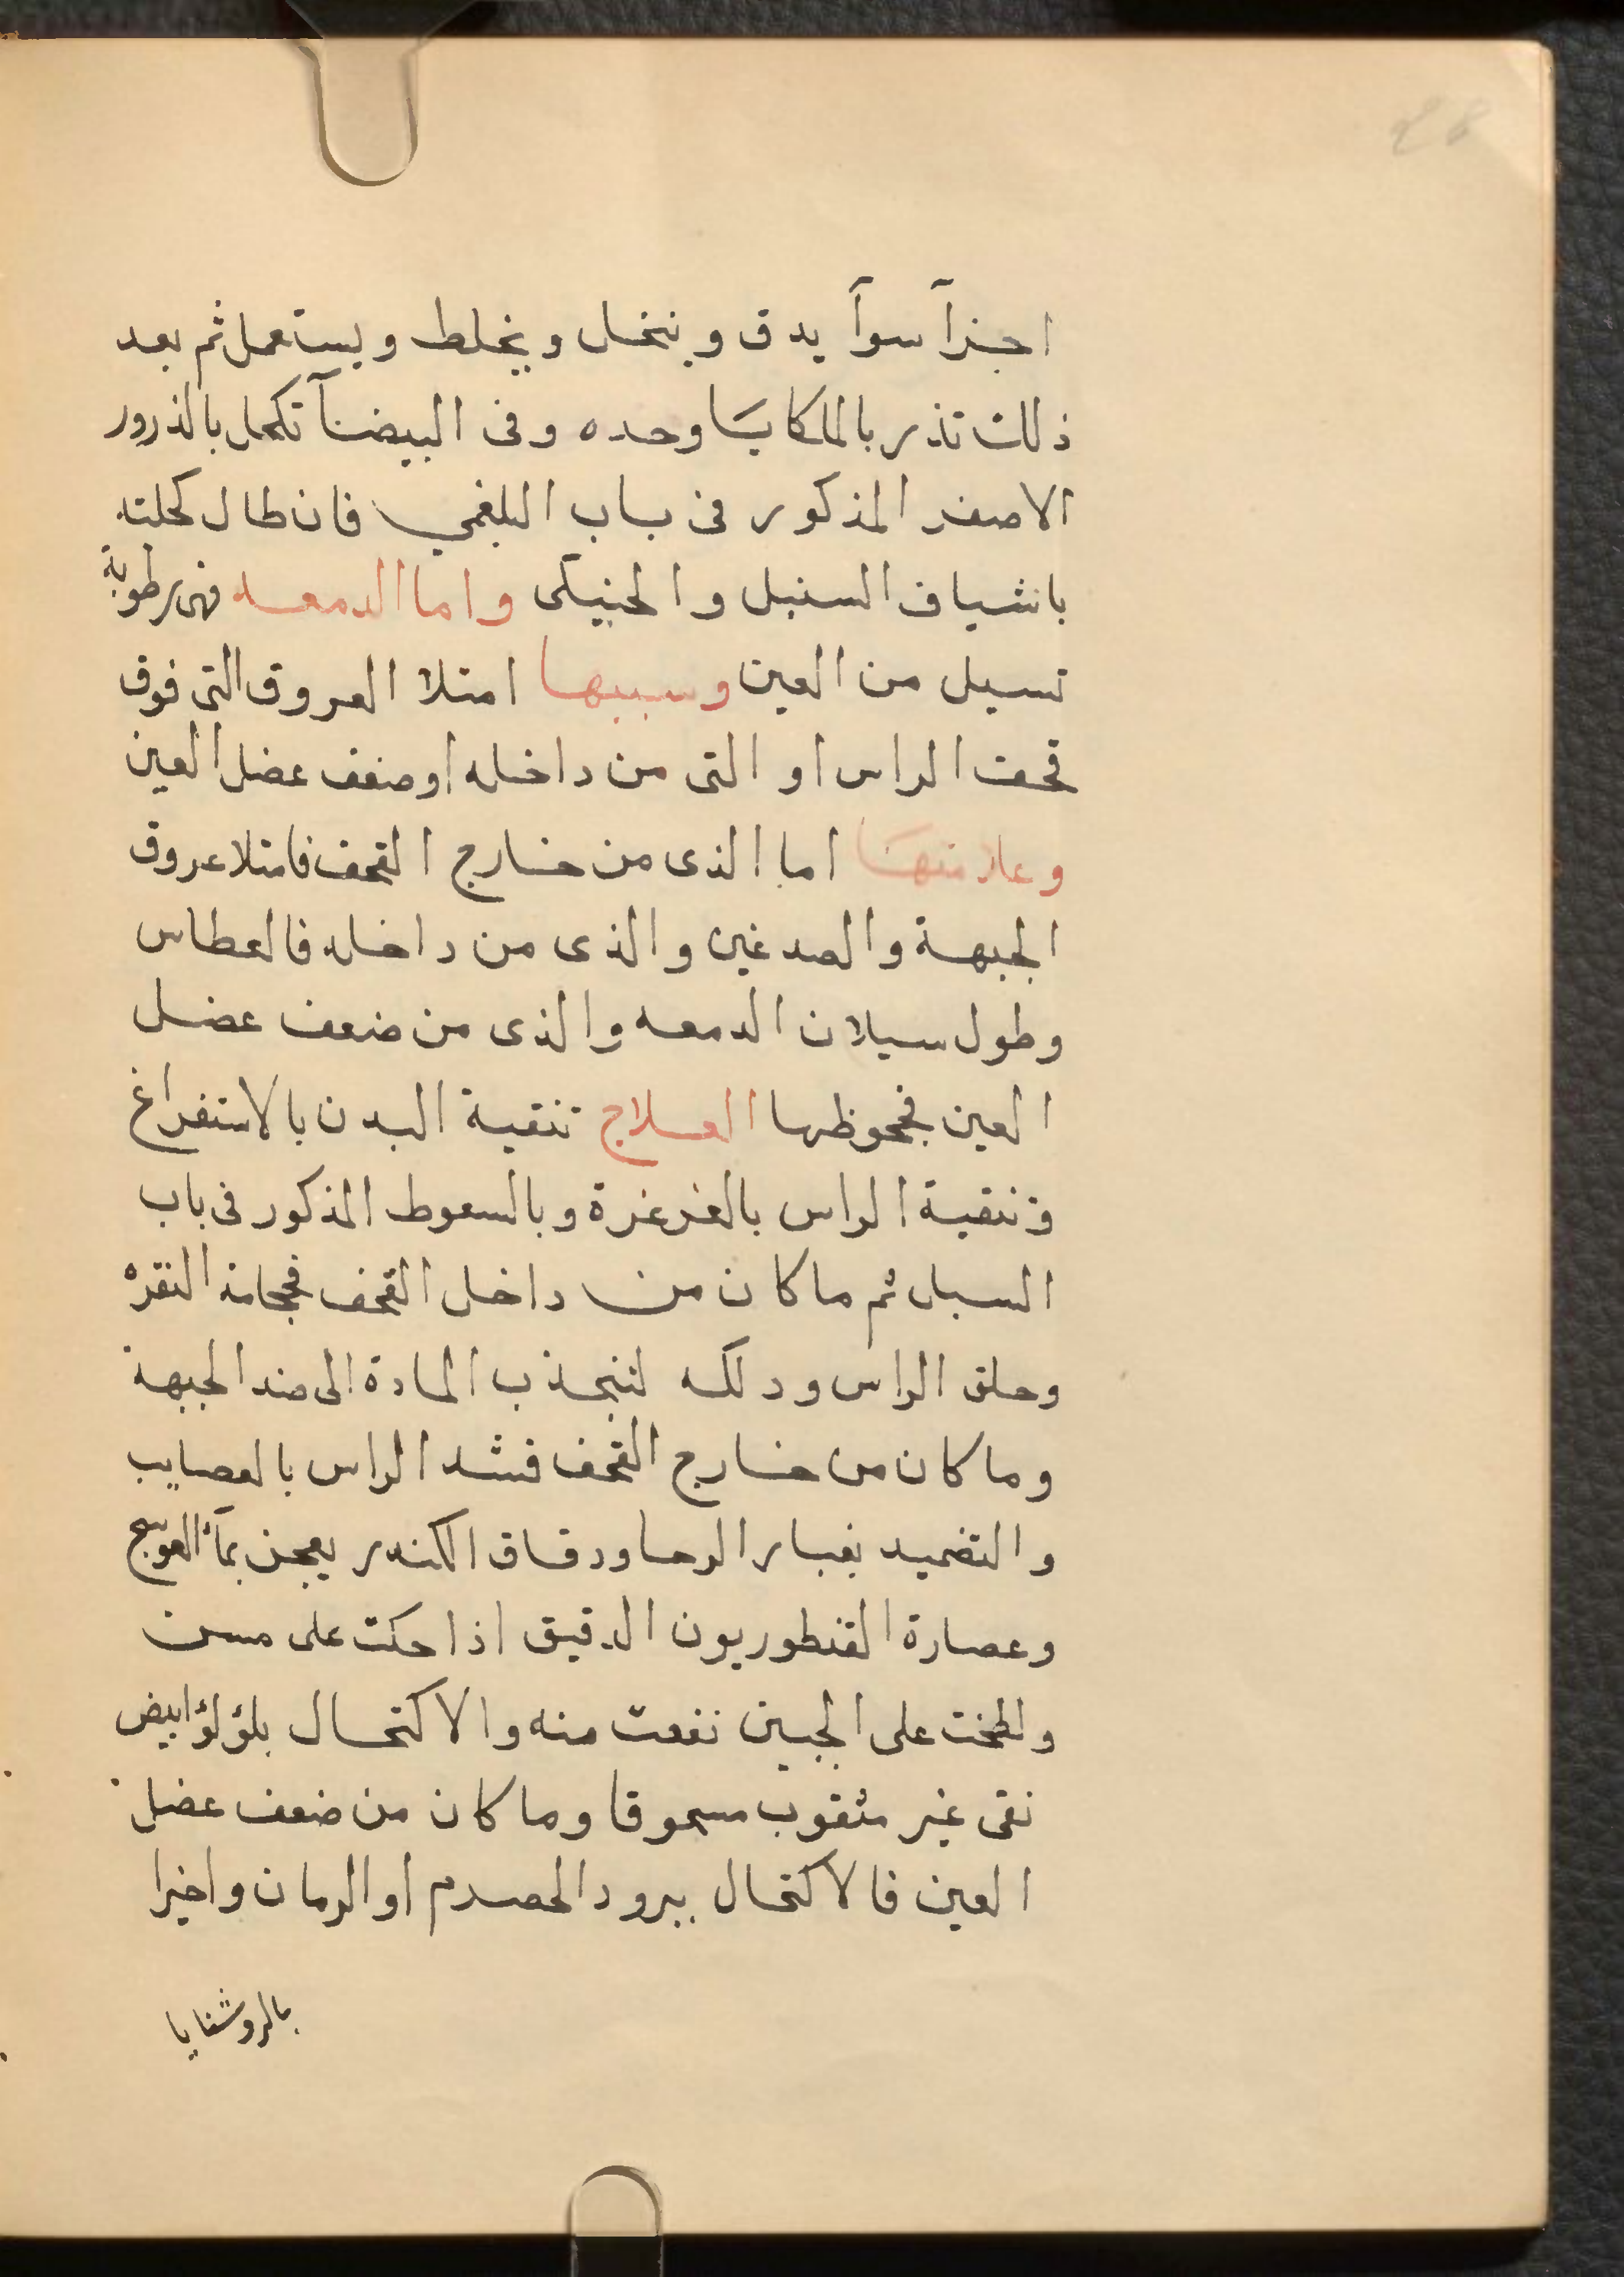 اجزآ سوآ يدق وينخل ويخلط ويستعمل ثم بعد
ذلك تذر بالملكايا وحده وفى البيضآ تكحل بالذرور
الاصفر المذكور فى باب البلغمي فان طال كحلته
باشياف السنبل والحنيكى واما الدمعه فهى رطوبة
تسيل من العين وسببها امتلا العروق التى فوق
قحف الراس او التى من داخله او ضعف عضل العين
وعلامتها اما الذى من خارج القحف فامتلا عروق
الجبهة والصدغين والذى من داخله فالعطاس
وطول سيلان الدمعه والذى من ضعف عضل
العين فجحوظها العلاج تنقية البدن بالاستفراغ
وتنقية الراس بالغرغرة وبالسعوط المذكور فى باب
السبل ثم ما كان من داخل القحف فحجامة النقره
وحلق الراس ودلكه لتنجذب المادة الى ضد الجبهة
وما كان من خارج القحف فشد الراس بالعصايب
والتضميد بغبار الرحا ودقاق الكندر يعجن بمآ العوسج
وعصارة القنطوريون الدقيق اذا حكت على مسن
ولطخت على الجبين نفعت منه والاكتحال بلؤلؤ ابيض
نقى غير مثقوب مسحوقا وما كان من ضعف عضل
العين فالاكتحال ببرود الحصرم او الرمان واخيرا
بالروشنايا